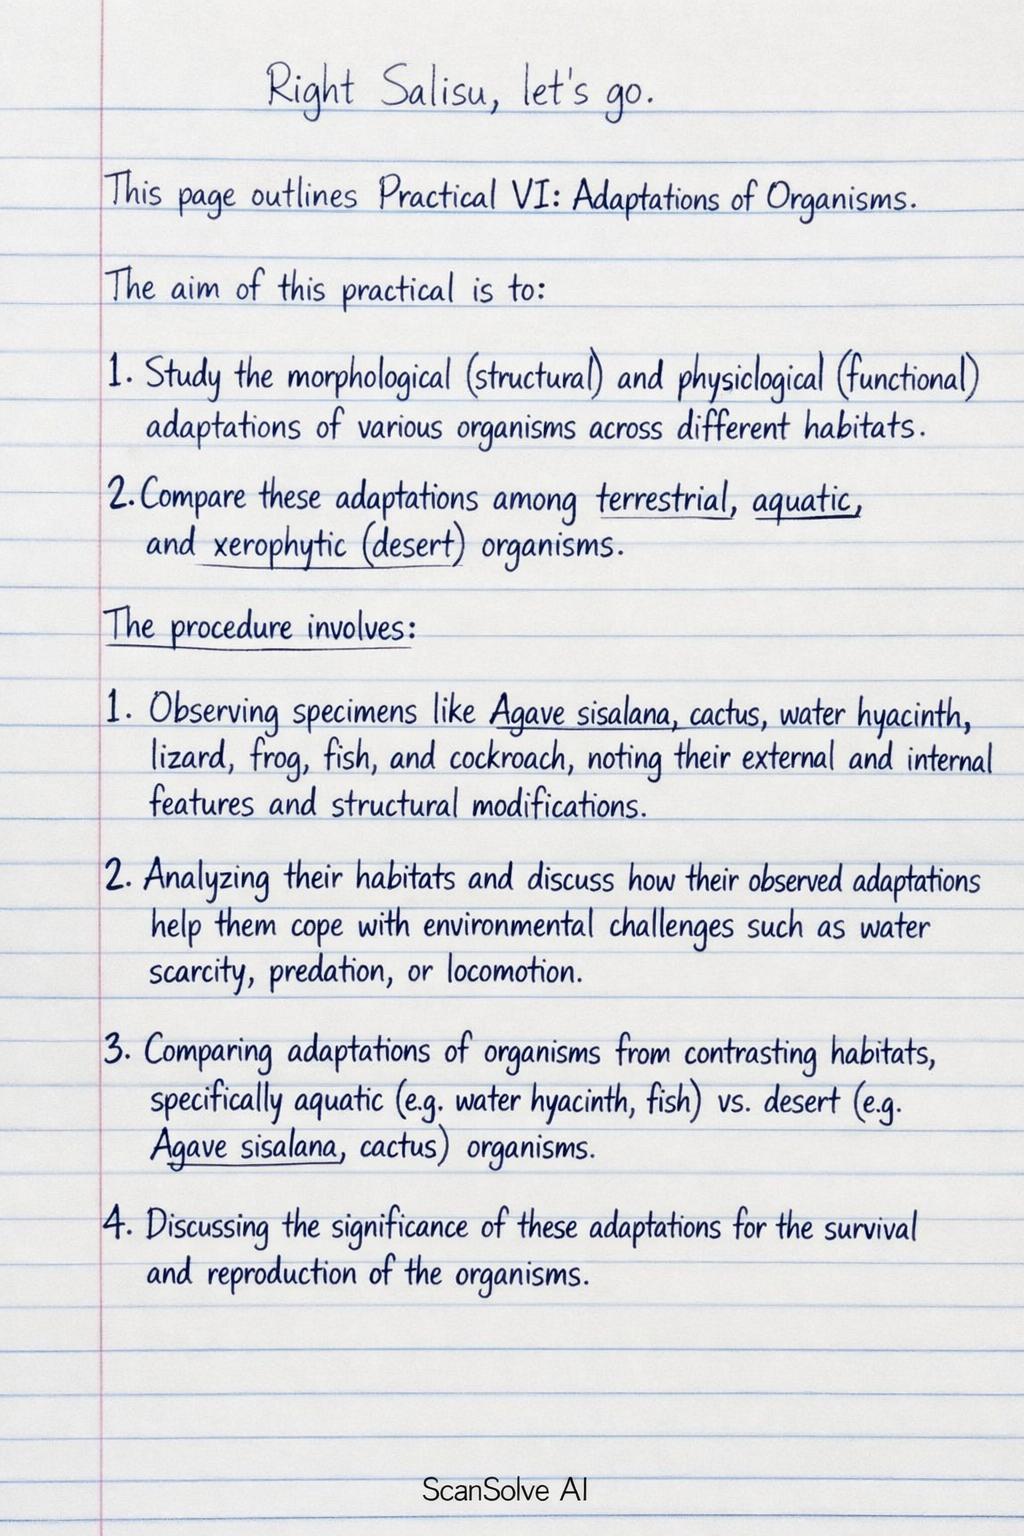 Right Salisu, let's go.
This page outlines Practical VI: Adaptations of Organisms.
The aim of this practical is to:
1. Study the morphological (structural) and physiclogical (functional)
adaptations of various organisms across different habitats.
2. Compare these adaptations among terrestrial, aquatic,
and xerophytic (desert) organisms.
The procedure involves:
1. Observing specimens like Agave sisalana, cactus, water hyacinth,
lizard, frog, fish, and cockroach, noting their external and internal
features and structural modifications.
2. Analyzing their habitats and discuss how their observed adaptations
help them cope with environmental challenges such as water
scarcity, predation, or locomotion.
3. Comparing adaptations of organisms from contrasting habitats,
specifically aquatic (e.g. water hyacinth, fish) vs. desert (e.g.
Agave sisalana, cactus) organisms.
4. Discussing the significance of these adaptations for the survival
and reproduction of the organisms.
ScanSolve AI